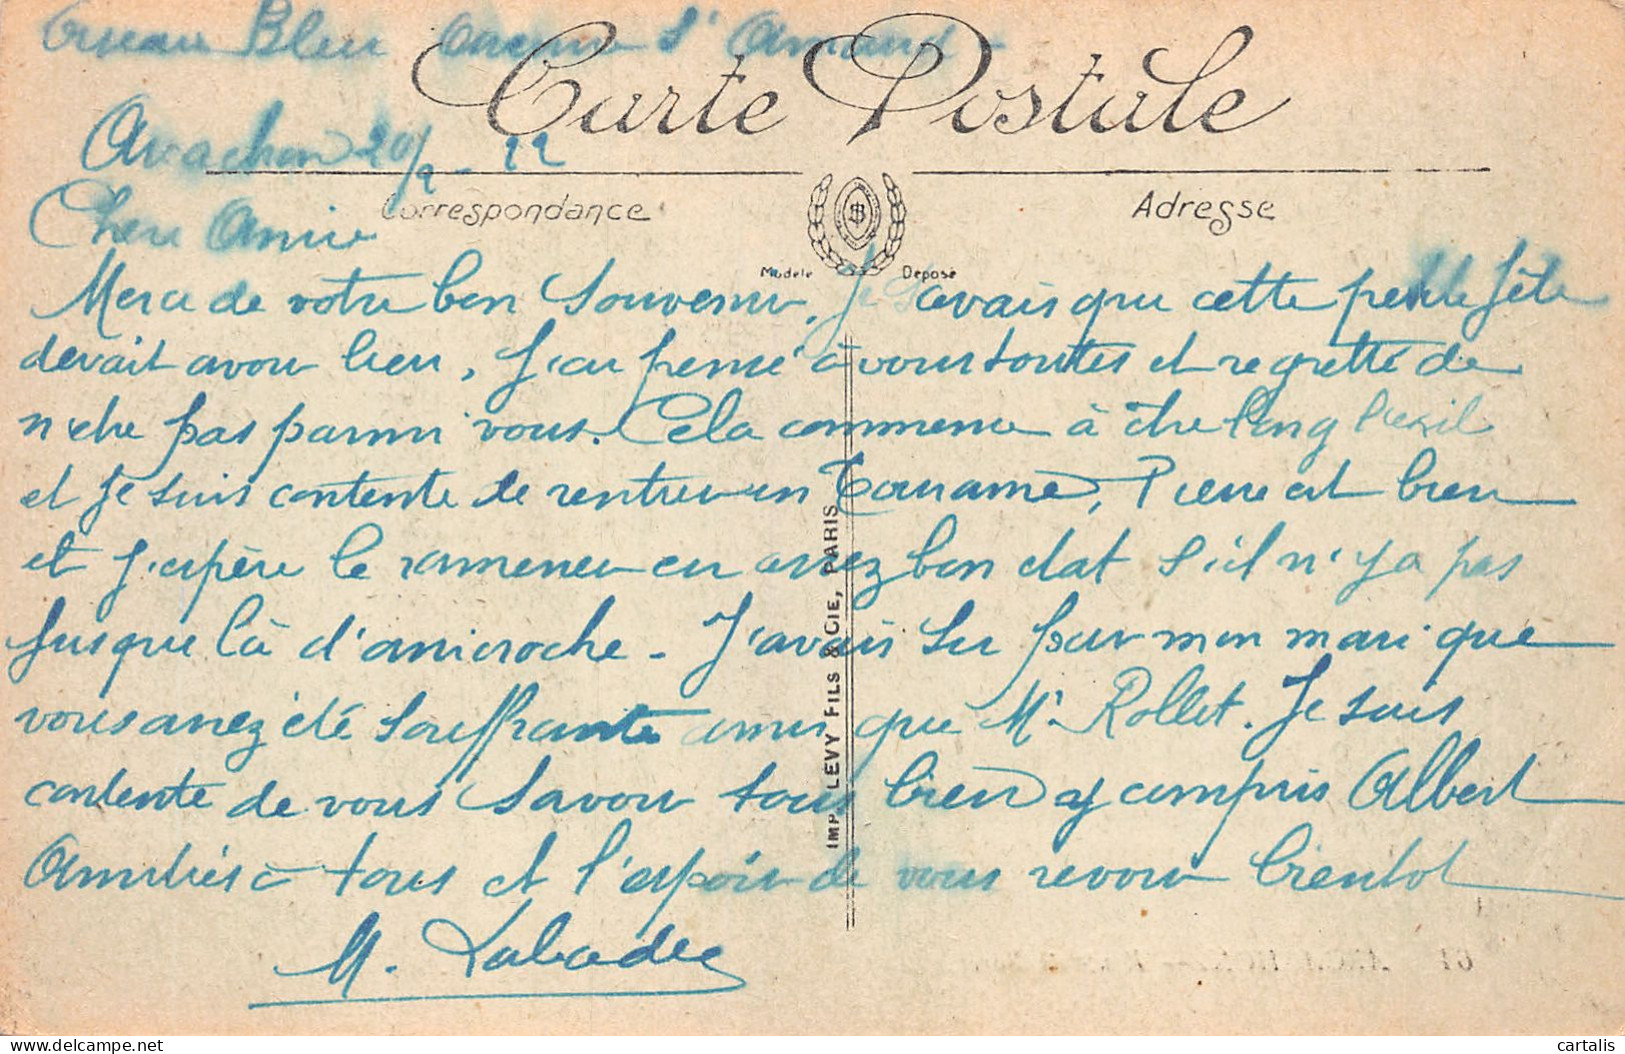 Oiseau Bleu avenue St Amand -
Carte Postale
Arcachon 20/9 - 22
Correspondance
Adresse
Chere Amie
Modèle Déposé
Merci de votre bon souvenir. Je savais que cette petite fête
devait avoir lieu, J'ai pensé à vous toutes et regretté de
n'etre pas parmi vous. Cela commence à être long l'exil
et Je suis contente de rentrer en Touraine, Pierre est bien
et J'espère le ramener en assez bon etat s'il n'y a pas
Jusque là d'anicroche - J'avais su par mon mari que
vous aviez été souffrante ainsi que Mr Rollet. Je suis
contente de vous savoir tous bien y compris Albert
Amitiés à tous et l'espoir de vous revoir bientot
M. Labadie
IMP. LEVY FILS & CIE, PARIS
61
cartalis delcampe.net